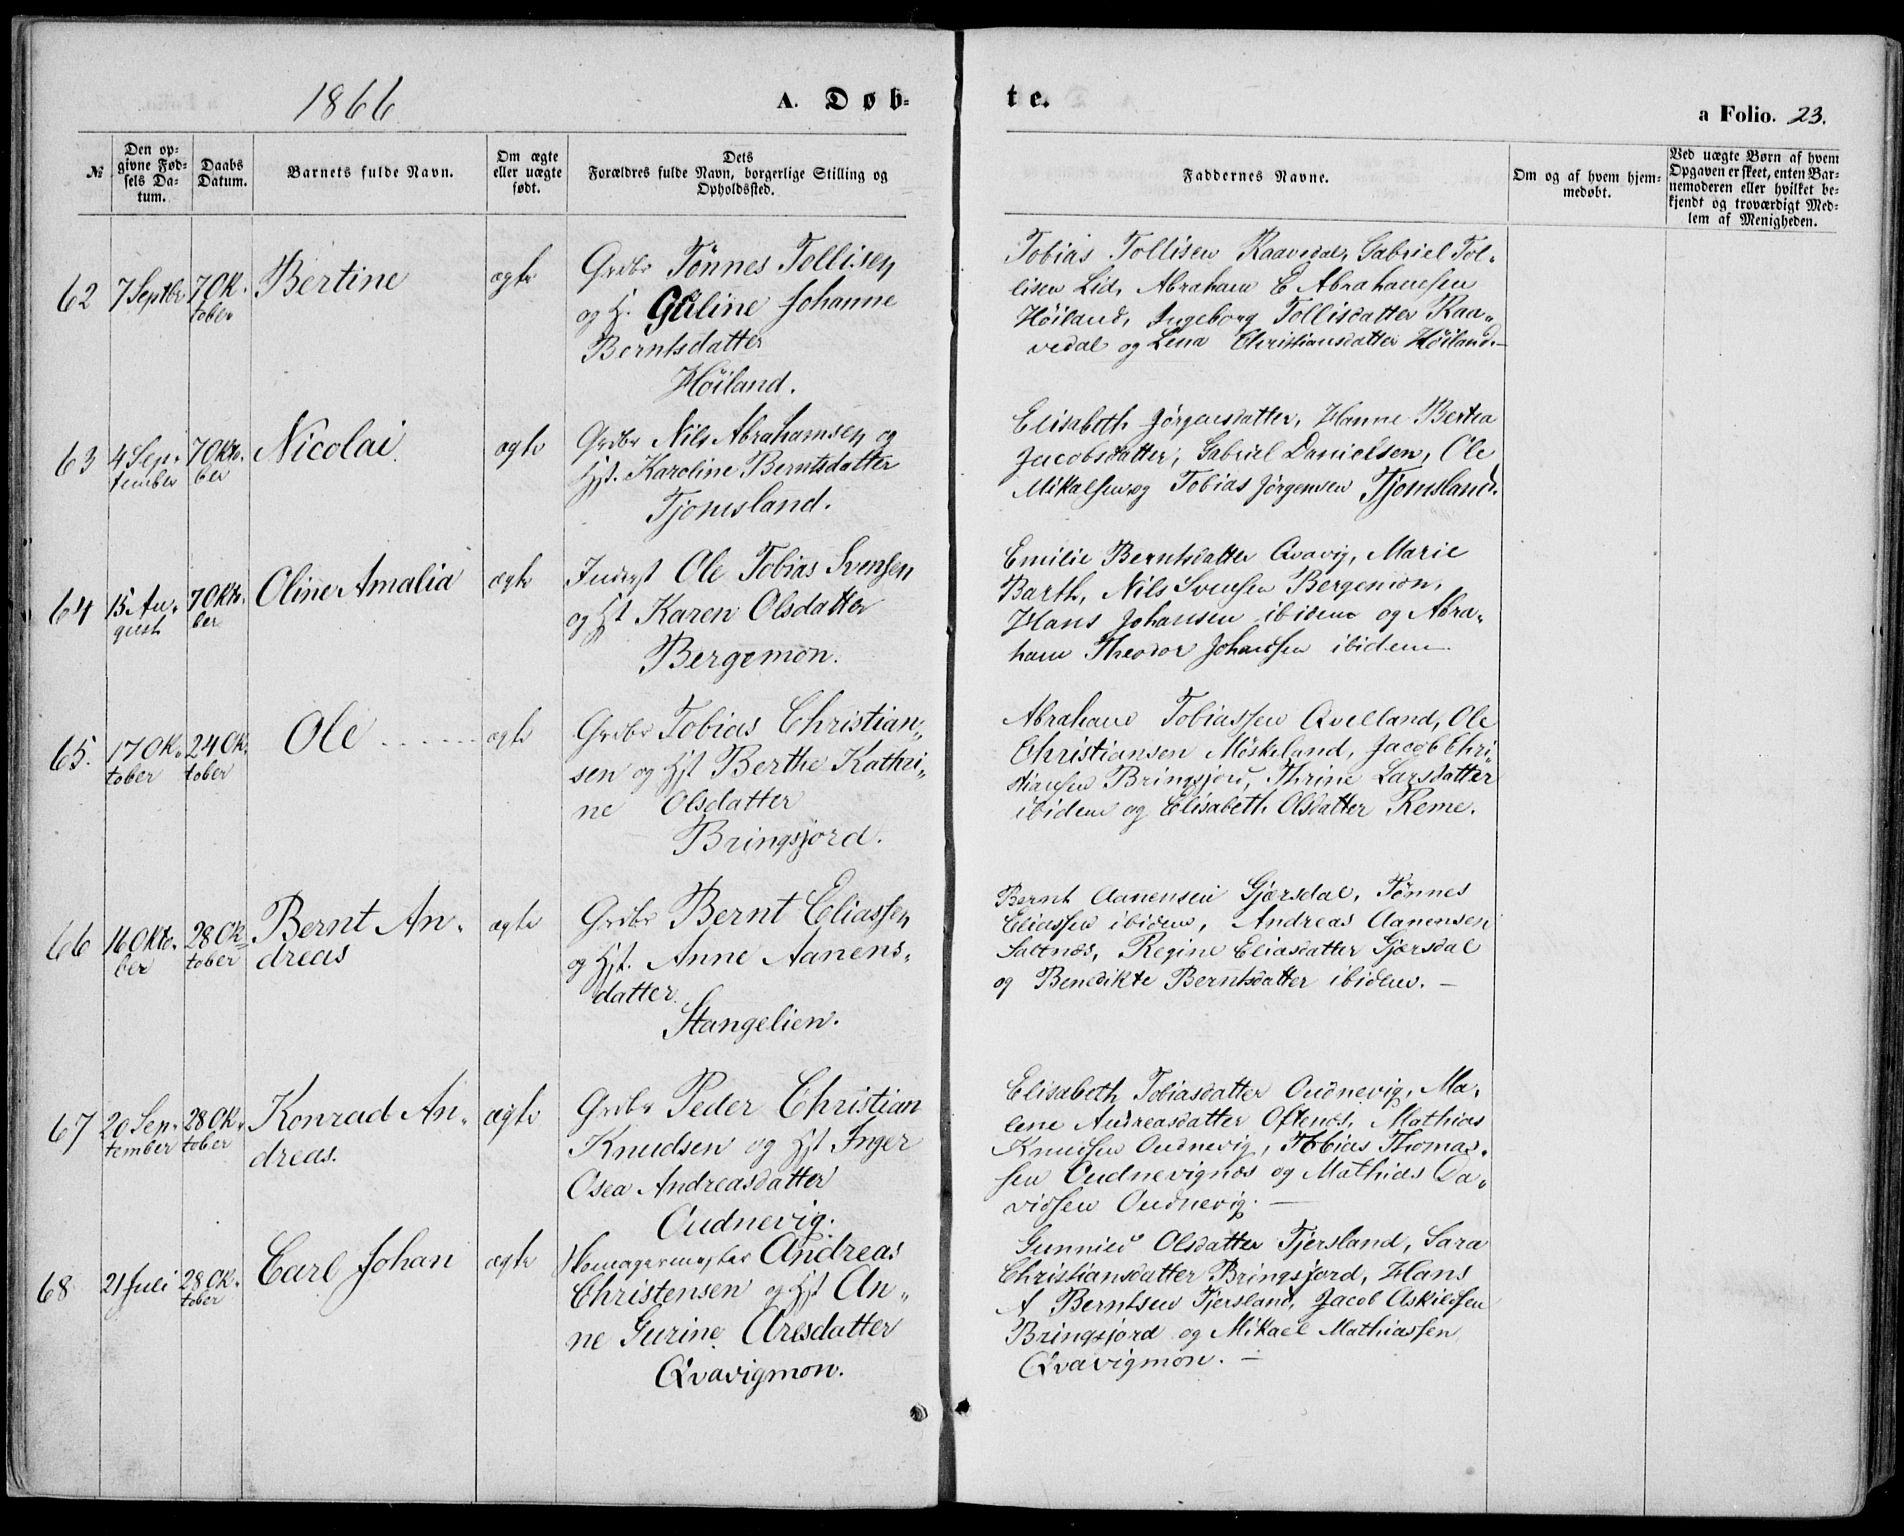 1866
A. Døb-
te.
a Folio. 23.
№
Den op-
givne Fød-
sels Da-
tum.
Daabs
Datum.
Barnets fulde Navn.
Om ægte
eller uægte
født.
Dets
Forældres fulde Navn, borgerlige Stilling og
Opholdssted.
Faddernes Navne.
Om og af hvem hjem-
medøbt.
Ved uægte Børn af hvem
Opgaven er skeet, enten Bar-
nemoderen eller hvilket be-
kjendt og troværdigt Med-
lem af Menigheden.
62
7 Septbr
7 Ok-
tober
Bertine
ægte
Grdbr Tønnes Tollisen
og H. Johanne
Berntsdatter
Höiland.
Tobias Tollisen Raavedal, Gabriel Tol-
lisen Lid, Abraham E Abrahamsen
Höiland, Ingeborg Tollisdatter Raa-
vedal og Lena Christiansdatter Höiland.-
63
4 Sep-
tember
7 Okto-
ber
Nicolai
ægte
Grdbr Nils Abrahamsen og
Hst. Karoline Berntsdatter
Tjomsland.
Elisabeth Jörgensdatter, Hanne Bertea
Jacobsdatter, Gabriel Danielsen, Ole
Mikalsen og Tobias Jörgensen Tjomsland.
64
15 Au-
gust
7 Okto-
ber
Oline Amalia
ægte
Inderst Ole Tobias Svensen
og Hst Karen Olsdatter
Bergemon.
Emilie Berntsdatter Qvavig, Marie
Barth, Nils Svensen Bergemon,
Hans Johansen ibidem og Abra-
ham Theodor Johansen ibidem
65.
17 Ok-
tober
24 Ok-
tober
Ole
ægte
Grdbr Tobias Christian-
sen og Hst Berthe Kathri-
ne Olsdatter
Bringsjord.
Abraham Tobiassen Qvelland, Ole
Christiansen Möskeland, Jacob Chri-
stiansen Bringsjord, Thrine Larsdatter
ibidem og Elisabeth Olsdatter Reme.
66
16 Okto-
ber
28 Ok-
tober
Bernt An-
dreas
ægte
Grdbr Bernt Eliassen
og Hst. Anne Aanens-
datter
Stangelien.
Bernt Aanensen Gjersdal, Tønnes
Eliassen ibidem, Andreas Aanensen
Saltnæs, Regine Eliasdatter Gjersdal
og Benedikte Berntsdatter ibidem. -
67
20 Sep-
tember
28 Ok-
tober
Konrad An-
dreas.
ægte
Grdbr Peder Christian
Knudsen og Hst Inger
Osea Andreasdatter
Oudnevig.
Elisabeth Tobiasdatter Oudnevig, Ma-
lene Andreasdatter Oftenæs, Mathias
Knudsen Oudnevig, Tobias Thomas-
sen Oudnevignæs og Mathias Da-
vidsen Oudnevig. -
68
21 Juli
28 Ok-
tober
Carl Johan
ægte
Andreas
Christensen og Hst An-
ne Gurine Aresdatter
Qvavigmon.
Gunnild Olsdatter Tjersland, Sara
Christiansdatter Bringsjord, Hans
A Berntsen Tjersland, Jacob Askildsen
Bringsjord og Mikael Mathiassen
Qvavigmon. -